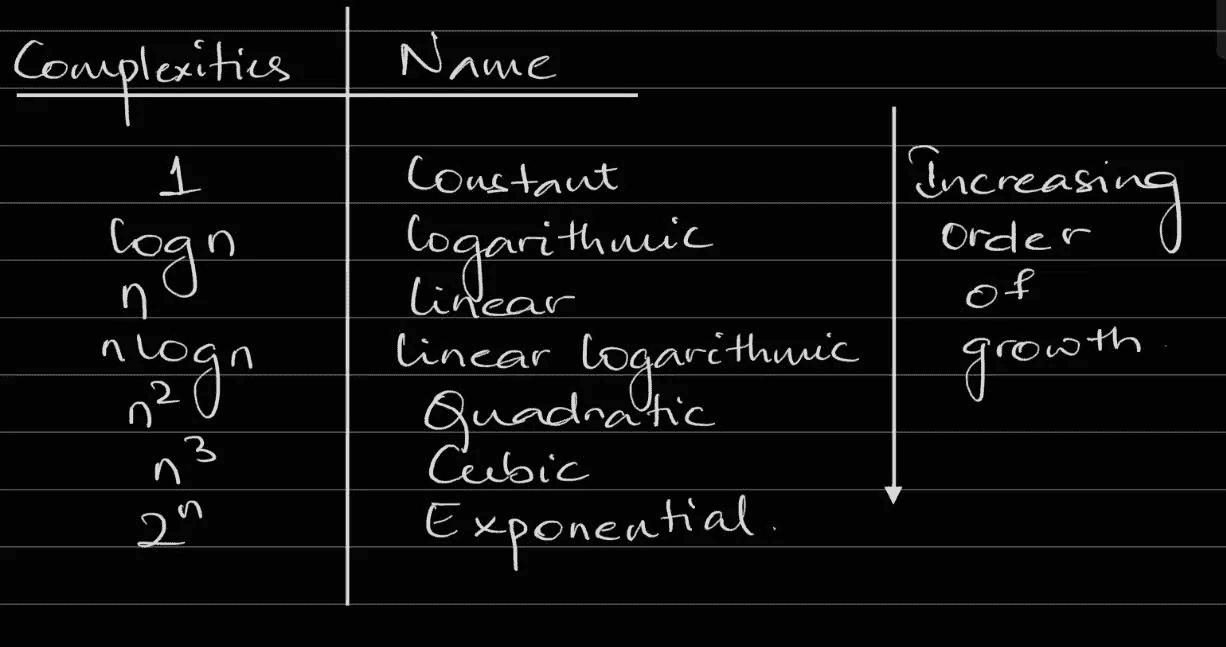 Complexities Name
1 Constant
logn logarithmic
n linear
nlogn linear logarithmic
n² Quadratic
n³ Cubic
2ⁿ Exponential.
Increasing
order
of
growth.